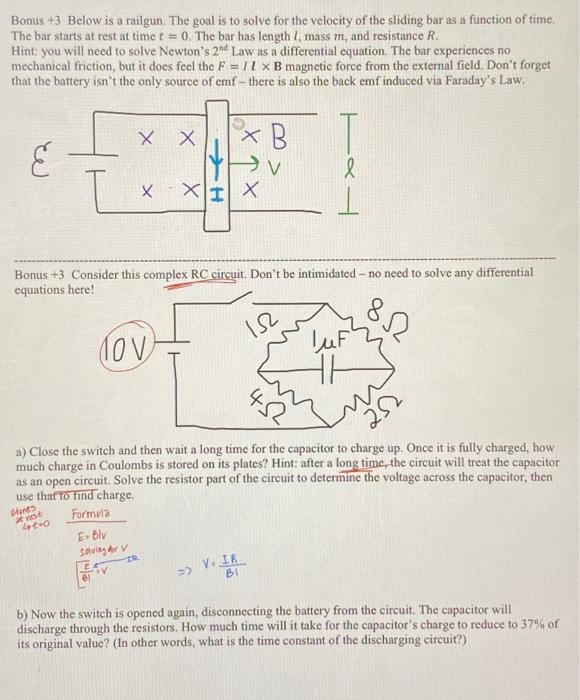 Bonus +3 Below is a railgun. The goal is to solve for the velocity of the sliding bar as a function of time.
The bar starts at rest at time t = 0. The bar has length l, mass m, and resistance R.
Hint: you will need to solve Newton's 2nd Law as a differential equation. The bar experiences no
mechanical friction, but it does feel the F = I l × B magnetic force from the external field. Don't forget
that the battery isn't the only source of emf – there is also the back emf induced via Faraday's Law.
x x x B
ε v l
x x I x
Bonus +3 Consider this complex RC circuit. Don't be intimidated – no need to solve any differential
equations here!
1Ω 8Ω
10V 1μF
4Ω 2Ω
a) Close the switch and then wait a long time for the capacitor to charge up. Once it is fully charged, how
much charge in Coulombs is stored on its plates? Hint: after a long time, the circuit will treat the capacitor
as an open circuit. Solve the resistor part of the circuit to determine the voltage across the capacitor, then
use that to find charge.
starts
at rest
t=0
Formula
E = Blv
solving for v
E/Bl = V IR => V = IR/Bl
b) Now the switch is opened again, disconnecting the battery from the circuit. The capacitor will
discharge through the resistors. How much time will it take for the capacitor's charge to reduce to 37% of
its original value? (In other words, what is the time constant of the discharging circuit?)